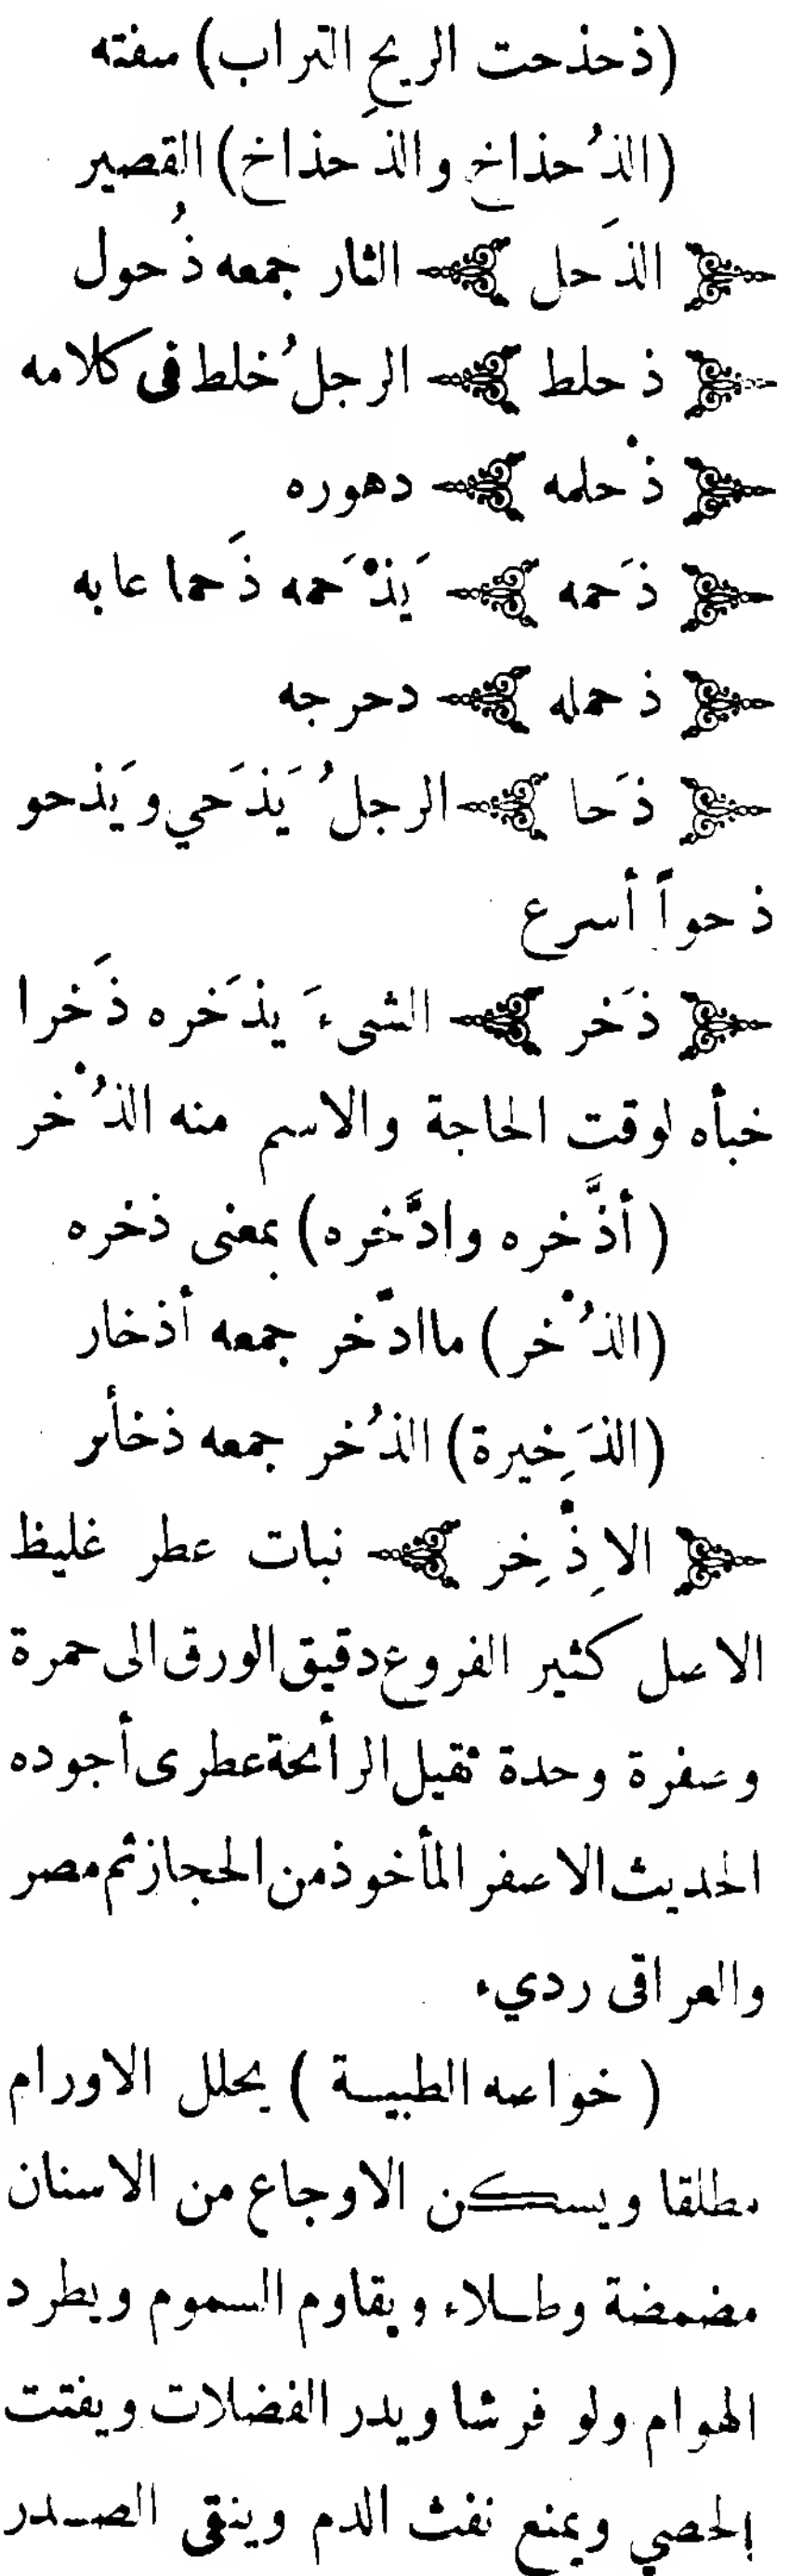 (ذحذحت الريحِ التراب) سفته
(الذُحذاخ والذَحذاخ) القصير
﴿ الذَحل ﴾ الثار جمعه ذُحول
﴿ ذحلط ﴾ الرجلُ خلط فى كلامه
﴿ ذْحلمه ﴾ دهوره
﴿ ذَحمه ﴾ يَذْحَمه ذَحما عابه
﴿ ذحمله ﴾ دحرجه
﴿ ذَحا ﴾ الرجلُ يَذحَي ويَذحو
ذحواً أسرع
﴿ ذَخر ﴾ الشىءَ يذخَره ذَخرا
خبأه لوقت الحاجة والاسم منه الذُْخر
(أذَّخره وادَّخره) بمعنى ذخره
(الذُْخر) ماادّخر جمعه أذخار
(الذَخِيرة) الذُخر جمعه ذخأئر
﴿ الاِذْخِر ﴾ نبات عطر غليظ
الاصل كثير الفروع دقيق الورق الى حمرة
وصفرة وحدة ثقيل الرأئحة عطرى أجوده
الحديث الاصفر المأخوذ من الحجاز ثم مصر
والعراقى رديء
( خواصه الطبيـة ) يحلل الاورام
مطلقا ويسكن الاوجاع من الاسنان
مضمضة وطـلاء ويقاوم السموم ويطرد
الهوام ولو فرشا ويدر الفضلات ويفتت
الحصي ويمنع نفث الدم وينقى الصـدر